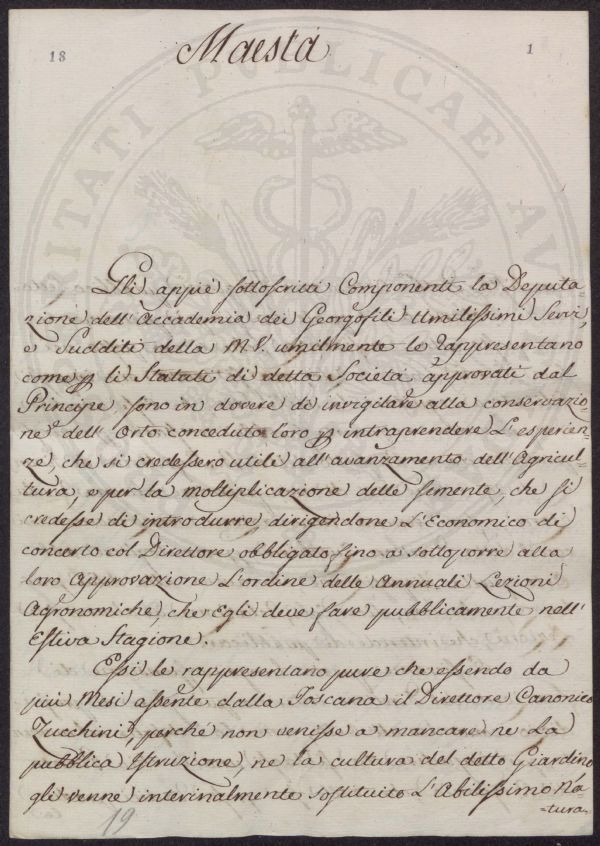 18
Maestà
1
Gli appiè sottoscritti Componenti la Deputa
zione dell'Accademia dei Georgofili Umilissimi Servi,
e Sudditi della M.V. umilmente le rappresentano
come li Statuti di detta Società approvati dal
Principe sono in dovere di invigilare alla conservazio-
ne dell'Orto conceduto loro intraprendere L'esperien-
ze, che si credessero utili all'avanzamento dell'Agricul-
tura, e per la moltiplicazione delle semente, che si
credesse di introdurre, dirigendone L'Economico di
concerto col Direttore obbligato fino a sottoporre alla
loro Approvazione L'ordine delle Annuali Lezioni
Agronomiche, che Egli deve fare pubblicamente nell'
Estiva Stagione.
Essi le rappresentano pure che essendo da
più Mesi assente dalla Toscana il Direttore Canonico
Zucchini, perché non venisse a mancare ne La
pubblica Istruzione, ne la cultura del detto Giardino
gli venne interinalmente sostituito L'Abilissimo Na-
-tura-
19
RITATI PUBLICAE AU